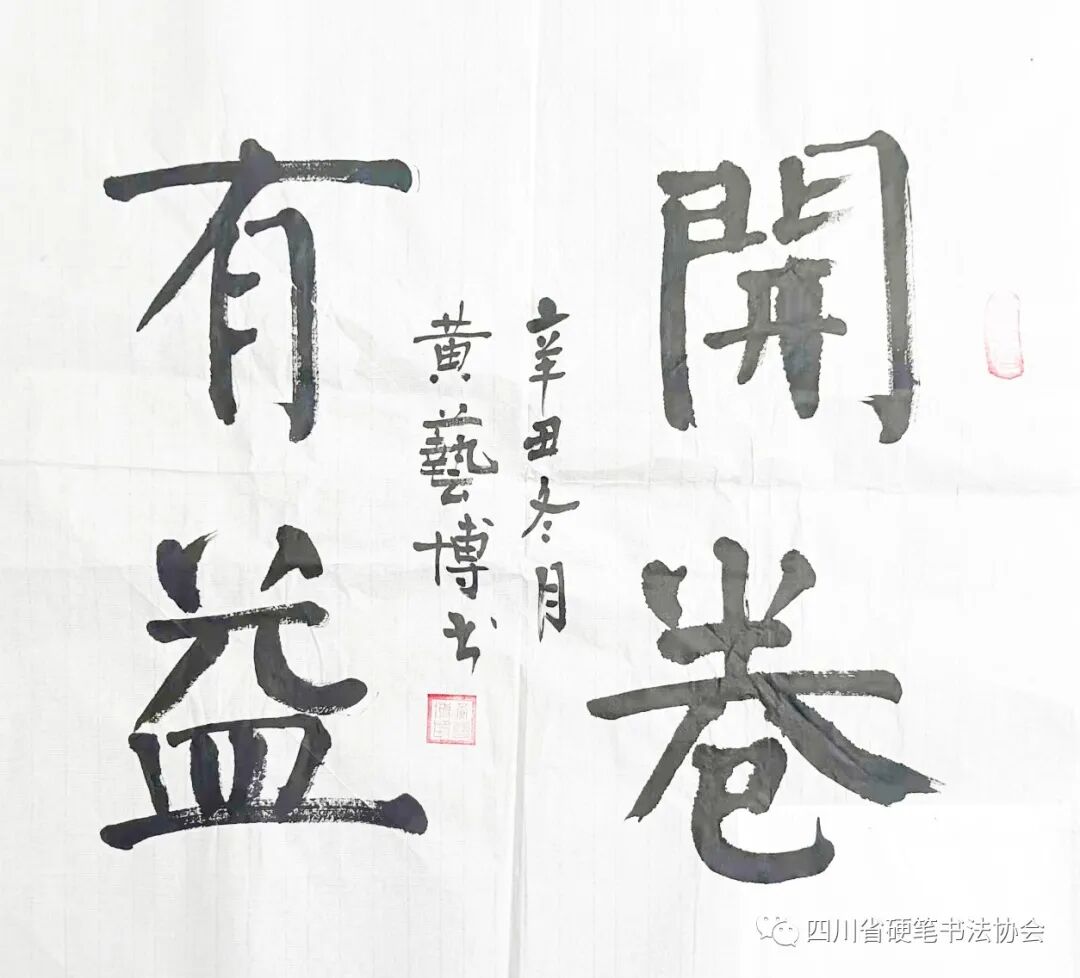 開卷
有益
辛丑冬月
黄藝博书
四川省硬笔书法协会